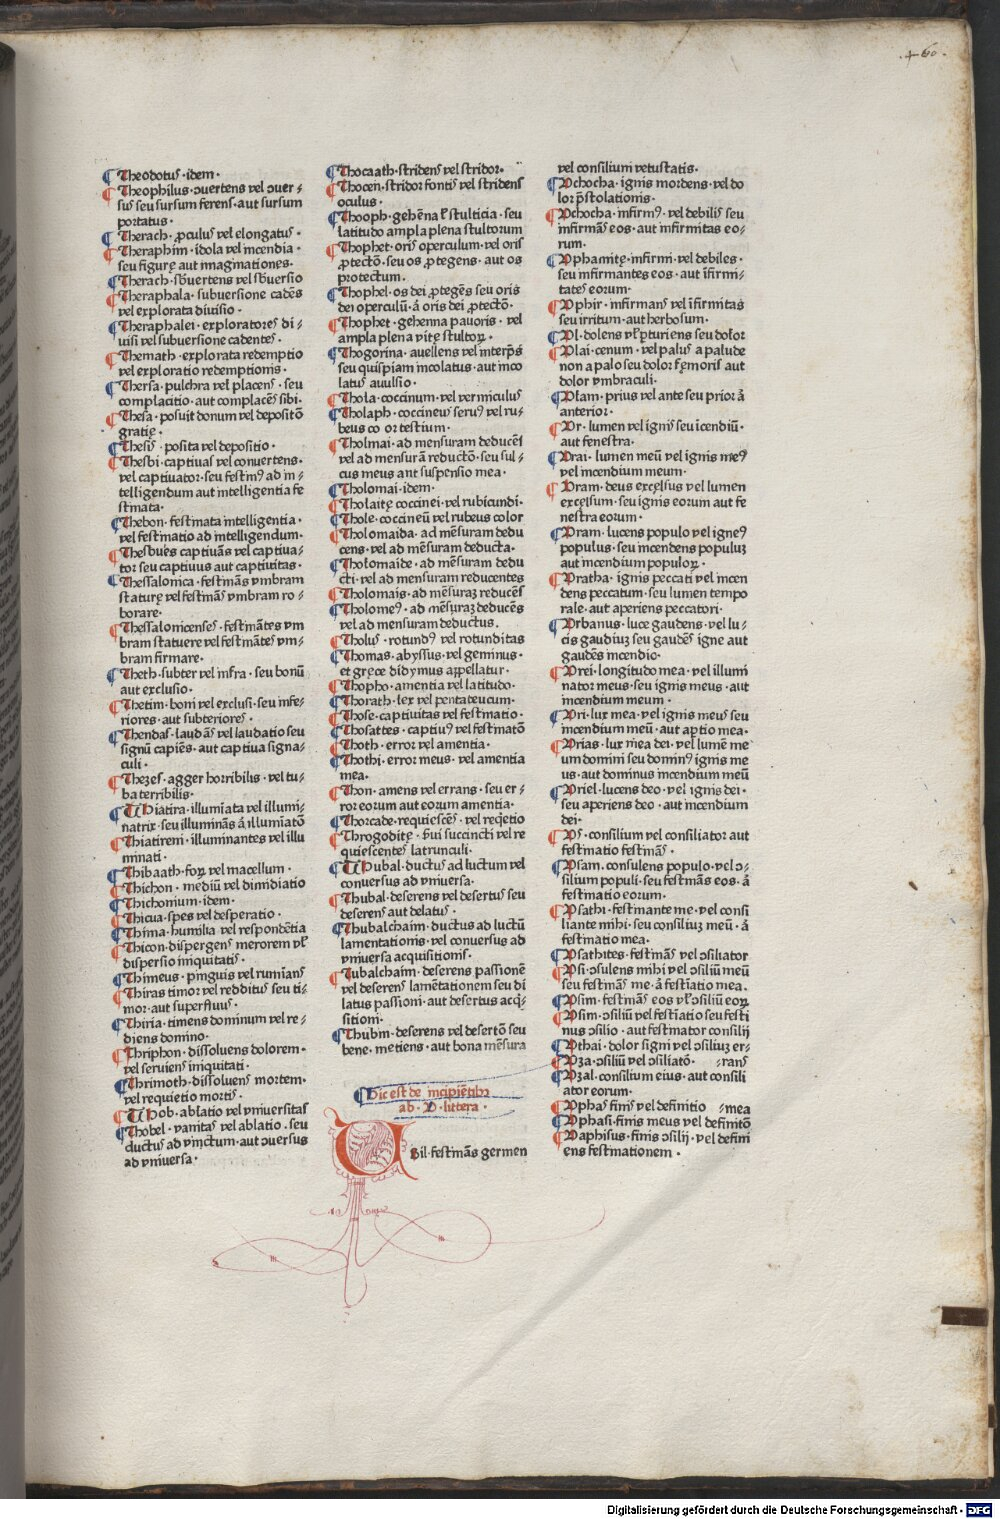 ·460·
Theodotus·idem·
Theophilus·ɔuertens vel ɔuer⸗
sus seu sursum ferens·aut sursum
portatus·
Therach·ꝓculus vel elongatus·
Theraphim·idola vel incendia·
seu figurę aut imaginationes·
Therach·sbuertens vel sbuersio
Theraphala·subuersione cadēs
vel explorata diuisio·
Theraphalei·exploratores di⸗
uisi vel subuersione cadentes·
Themath·explorata redemptio
vel exploratio redemptionis·
Thersa·pulchra vel placens·seu
complacitio·aut complacēs sibi·
Thesa·posuit donum vel depositō
gratię·
Thesis·posita vel depositio·
Thesbi·captiuas vel conuertens·
vel captiuator·seu festinꝰ ad in⸗
telligendum aut intelligentia fe
stinata·
Thebon·festinata intelligentia·
vel festinatio ad intelligendum·
Thesbues captiuās vel captiua⸗
tor seu captiuus aut captiuitas·
Thessalonica·festinās vmbram
staturę vel festinās vmbram ro⸗
borare·
Thessalonicenses·festinātes vm
bram statuere vel festinātes vm⸗
bram firmare·
Theth·subter vel infra·seu bonū
aut exclusio·
Thetim·boni vel exclusi·seu infe⸗
riores·aut subteriores·
Thendas·laudās vel laudatio seu
signū capiēs·aut captiua signa⸗
culi·
Thezes·agger horribilis·vel tu⸗
ba terribilis·
Thiatira·illumīata vel illumi⸗
natrix·seu illuminās ā illumīatō
Thiatireni·illuminantes vel illu
minati·
Thibaath·foꝝ vel macellum·
Thichon·mediū vel dimidiatio
Thichonium·idem·
Thicua·spes vel desperatio·
Thima·humilia vel respondētia
Thicon·dispergens merorem vl̄
dispersio iniquitatis·
Thimeus·pinguis vel ruminās
Thiras timor vel redditus seu ti⸗
mor·aut superfluus·
Thiria·timens dominum vel re⸗
diens domino·
Thriphon·dissoluens dolorem·
vel seruiens iniquitati·
Thrimoth·dissoluens mortem·
vel requietio mortis·
Thob·ablatio vel vniuersitas
Thobel·vanitas vel ablatio·seu
ductus ad vinctum·aut ɔuersus
ad vniuersa·
Thocaath·stridens vel stridor·
Thocen·stridor fontis vel stridens
oculus·
Thooph·gehēna vl̄ stulticia·seu
latitudo ampla plena stultorum
Thophet·oris operculum·vel oris
ꝓtectō·seu os ꝓtegens·aut os
protectum·
Thophel·os dei ꝓtegēs seu oris
dei operculū·ā oris dei ꝓtectō·
Thophet·gehenna pauoris·vel
ampla plena vitę stultoꝝ·
Thogorina·auellens vel interp̄s
seu quispiam incolatus·aut inco
latus auulsio·
Thola·coccinum·vel vermiculus
Tholaph·coccineus serus vel ru⸗
beus co or testium·
Tholmai·ad mensuram deducēs
vel ad mensurā reductō·seu sul⸗
cus meus ant suspensio mea·
Tholomai·idem·
Tholaitę coccinei·vel rubicundi·
Thole·coccineū vel rubeus color
Tholomaida·ad mēsuram dedu
cens·vel ad mēsuram deducta·
Tholomaide·ad mēsuram dedu
cti·vel ad mensuram reducentes
Tholomais·ad mēsuraꝫ reducēs
Tholomeꝰ·ad mēsuraꝫ deducēs
vel ad mensuram deductus·
Tholus·rotundꝰ vel rotunditas
Thomas·abyssus·vel geminus·
et gręce didymus appellatur·
Thopho·amentia vel latitudo·
Thorath·lex vel pentateucum·
Those·captiuitas vel festinatio·
Thosattes·captiuꝰ vel festinatō
Thoth·error vel amentia·
Thothi·error meus·vel amentia
mea·
Thon·amens vel errans·seu er⸗
ror eorum aut eorum amentia·
Thorcade·requiescēs·vel reꝗetio
Throgoditę·sui succincti vel re
quiescentes latrunculi·
Thubal·ductus ad luctum vel
conuersus ad vniuersa·
Thubal·deserens vel desertus seu
deserens aut delatus·
Thubalchaim·ductus ad luctū
lamentationis·vel conuersus ad
vniuersa acquisitionis·
Tubalchaim·deserens passionē
vel deserens lamētationem seu di
latus passioni·aut desertus acꝗ⸗
sitioni·
Thubin·deserens vel desertō seu
bene·metiens·aut bona mēsura
Hic est de incipiētibꝫ
ab·V·littera·
Vbil·festinās germen
vel consilium vetustatis·
Vchocha·ignis mordens·vel do
lor p̄stolationis·
Vchocha·infirmꝰ·vel debilis seu
infirmās eos·aut infirmitas eo⸗
rum·
Vphamitę·infirmi·vel debiles·
seu infirmantes eos·aut īfirmi⸗
tates eorum·
Vphir·infirmans vel īfirmitas
seu irritum·aut herbosum·
Vl·dolens vl̄ pturiens seu dolor
Vlai·cenum·vel palus a palude
non a palo seu dolor fęmoris aut
dolor vmbraculi·
Vlam·prius vel ante seu prior ā
anterior·
Vr·lumen vel ignis seu īcendiū·
aut fenestra·
Vrai·lumen meū vel ignis meꝰ
vel incendium meum·
Vram·deus excęlsus vel lumen
excęlsum·seu ignis eorum aut fe
nestra eorum·
Vram·lucens populo vel igneꝰ
populus·seu incendens populuꝫ
aut incendium populoꝝ·
Vratha·ignis peccati vel incen
dens peccatum·seu lumen tempo
rale·aut aperiens peccatori·
Vrbanus·luce gaudens·vel lu⸗
cis gaudiuꝫ seu gaudēs igne aut
gaudēs incendio·
Vrei·longitudo mea·vel illumi
nator meus·seu ignis meus·aut
incendium meum·
Vri·lux mea·vel ignis meus seu
incendium meū·aut aptio mea·
Vrias·lux mea dei·vel lumē me
um domini seu dominꝰ ignis me
us·aut dominus incendium meū
Vriel·lucens deo·vel ignis dei·
seu aperiens deo·aut incendium
dei·
Vs·consilium vel consiliator aut
festinatio festinās·
Vsam·consulens populo·vel ɔ⸗
silium populi·seu festinās eos·ā
festinatio eorum·
Vsathi·festinante me·vel consi
liante mihi·seu consiliuꝫ meū·ā
festinatio mea·
Vsathites·festinās vel ɔsiliator
Vsi·ɔsulens mihi vel ɔsiliū meū
seu festinās me·ā festīatio mea·
Vsim·festinās eos vl̄ ɔsiliū eoꝝ
Vsim·ɔsiliū vel festīatio seu festi
nus ɔsilio·aut festinator consilij
Vthai·dolor signi vel ɔsiliuꝫ er⸗
Vza·ɔsiliū vel ɔsiliatō· ⸗rans
Vzal·consilium eius·aut consili
ator eorum·
Vphas finis vel definitio ⸗mea
Vphasi·finis meus vel definitō
Vaphisus·finis ɔsilij·vel defini
ens festinationem·
Digitalisierung gefördert durch die Deutsche Forschungsgemeinschaft - DFG